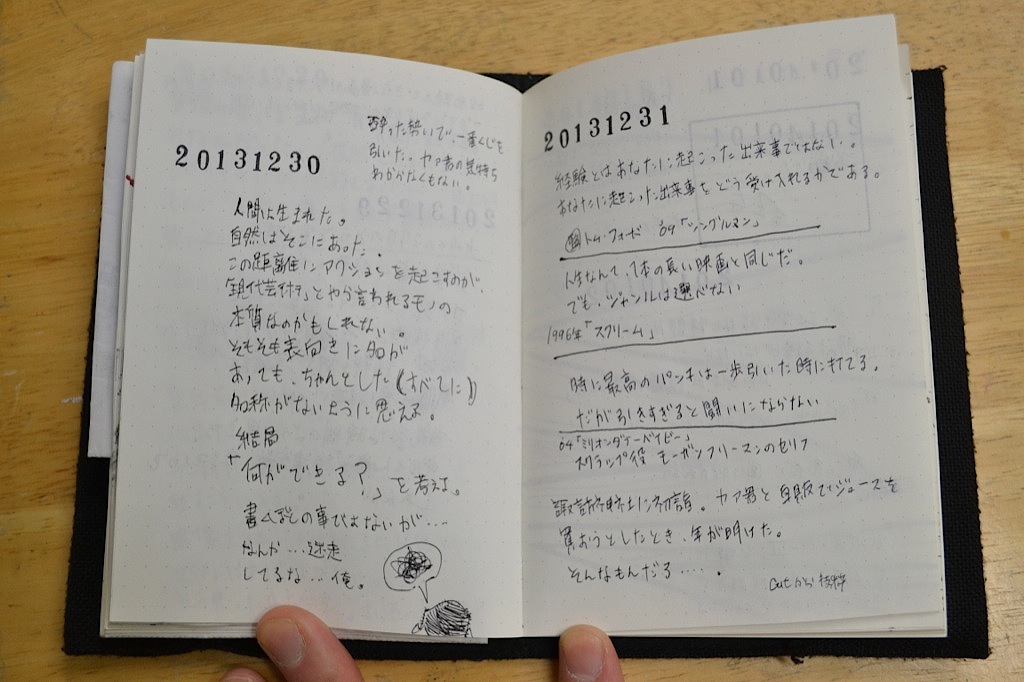 20131230
酔った勢いで、一番くじを
引いた。カァ君の気持ち
わからなくもない。
人間は生まれた。
自然はそこにあった。
この距離にアクションを起こすのが、
「現代芸術」とやら言われるモノの
本質なのかもしれない。
そもそも表向きに名が
あっても、ちゃんとした(すべてに)
名称がないように思える。
結局
「何ができる?」を考えよ。
書くほどの事ではないが…
なんか…迷走
してるな…俺。
20131231
経験とはあなたに起こった出来事ではない。
あなたに起こった出来事をどう受け入れるかである。
トム・フォード '09「シングルマン」
人生なんて、1本の長い映画と同じだ。
でも、ジャンルは選べない
1996年「スクリーム」
時に最高のパンチは一歩引いた時に打てる。
だが引きすぎると闘いにならない
'04「ミリオンダラーベイビー」
スクラップ役 モーガンフリーマンのセリフ
諏訪神社に初詣。カァ君と自販でジュースを
買おうとしたとき、年が明けた。
そんなもんだろ….
Cutから抜粋